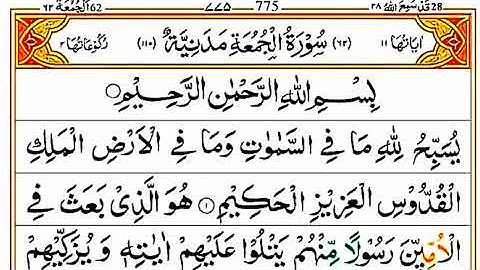 الجمعة ٦٢ 62 ٧٧٥ 775 قد سمع الله ٢٨ 28
اٰيَاتُهَا ١١ (٦٢) سُوْرَةُ الْجُمُعَةِ مَدَنِيَّةٌ (١١٠) رُكُوْعَاتُهَا ٢
بِسْمِ اللهِ الرَّحْمٰنِ الرَّحِيْمِ
يُسَبِّحُ لِلّٰهِ مَا فِي السَّمٰوٰتِ وَمَا فِي الْاَرْضِ الْمَلِكِ
الْقُدُّوْسِ الْعَزِيْزِ الْحَكِيْمِ ١ هُوَ الَّذِيْ بَعَثَ فِي
الْاُمِّيّٖنَ رَسُوْلًا مِّنْهُمْ يَتْلُوْا عَلَيْهِمْ اٰيٰتِهٖ وَيُزَكِّيْهِمْ